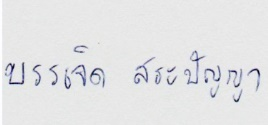 บรรเจิด สระปัญญา